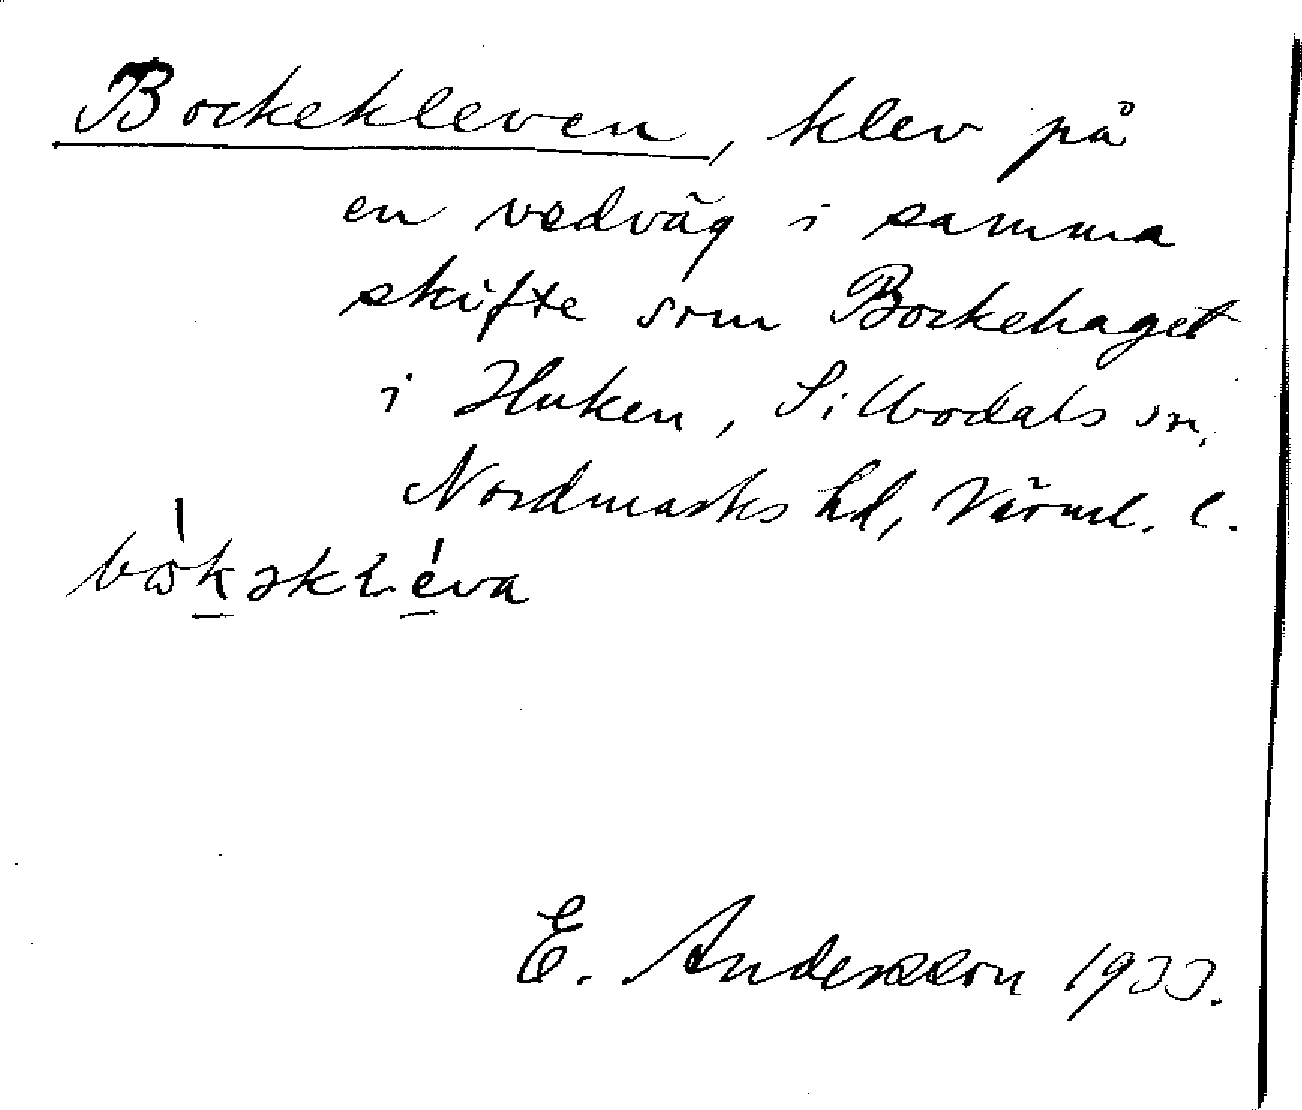 Bockekleven, klev på
en vedväg i samma
skifte som Bockehaget
i Huken, Sillbodals sn,
Nordmarks hd, Värml. l.
E. Andersson 1933.